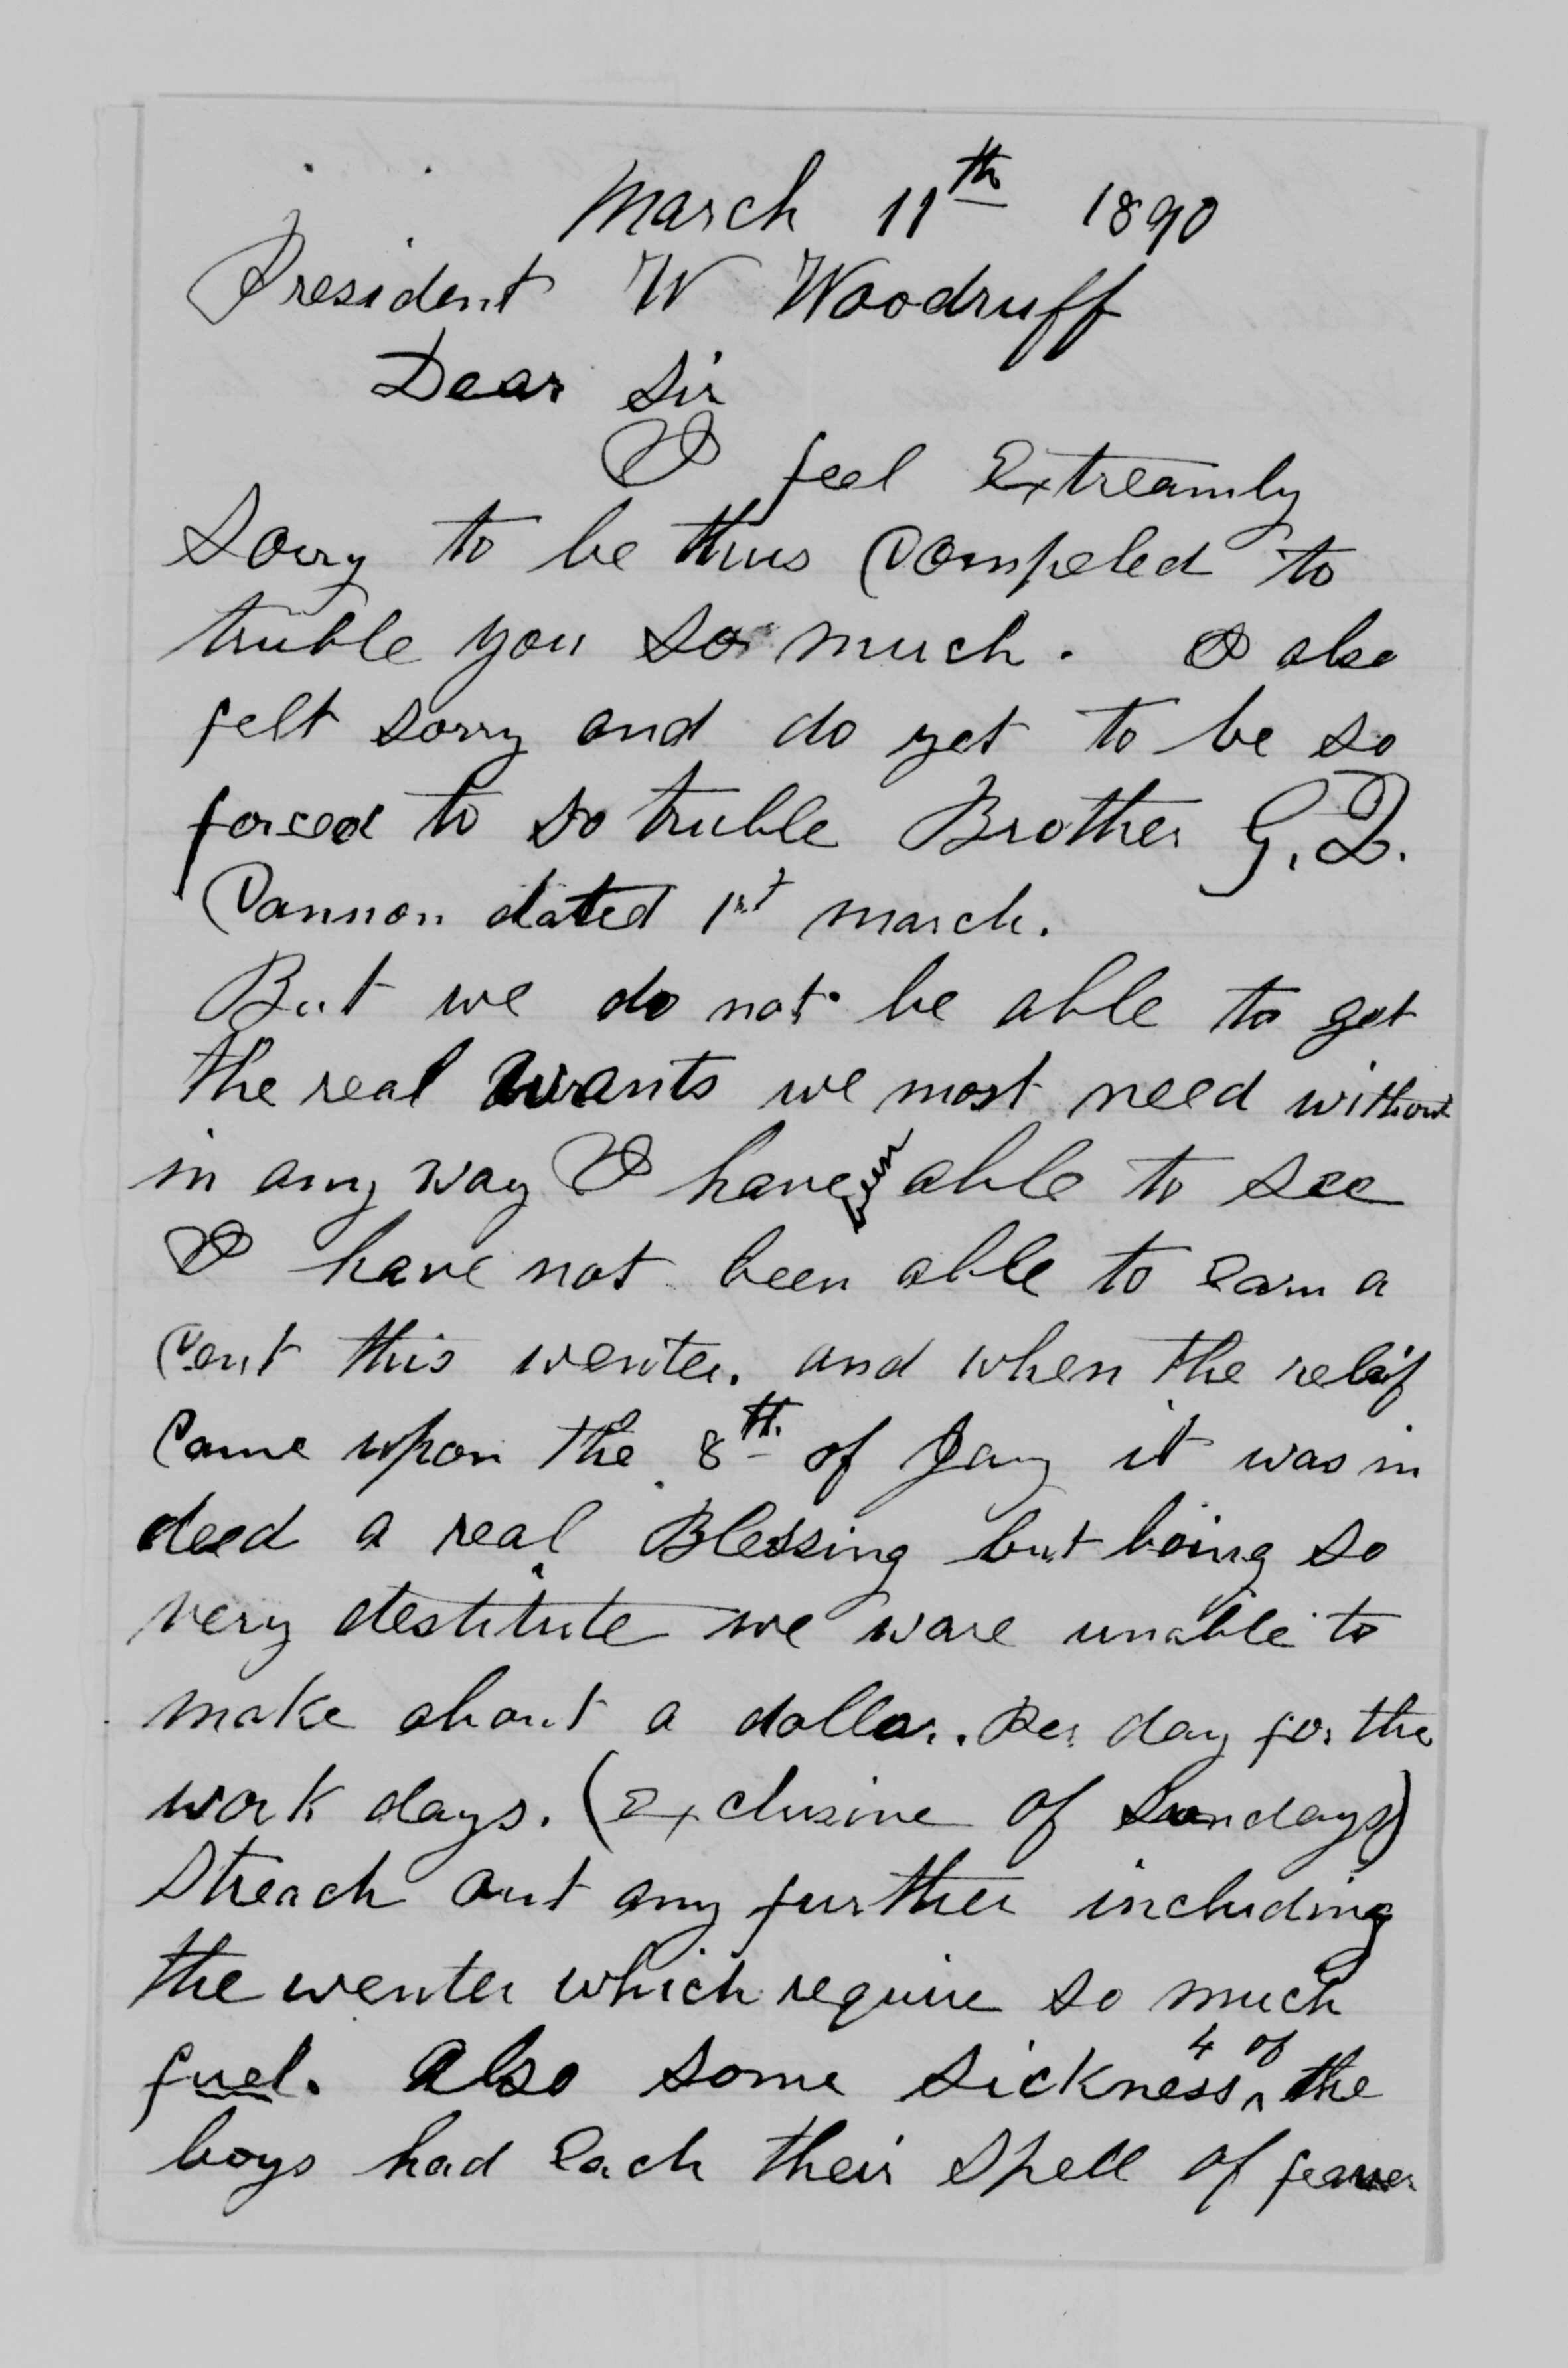 March 11th 1890
President W Woodruff
Dear Sir
I feel Extreamly
Sorry to be thus Compeled to
truble you so much. I also
felt sorry and do yet to be so
forced to so truble Brother G. Q.
Cannon dated 1st march.
But we do not be able to get
the real wants we most need without
in any way I have been able to see
I have not been able to earn a
Cent this wenter. and when the relief
Came upon the 8th of Jany it was in
deed a real Blessing but being so
very destitute we ware unable to
make about a dollar. Per day for the
work days. (Exclusive of Sundays)
Streach out any further including
the wenter which require so much
fuel. Also some sickness 4 of the
boys had Each their spell of feaver